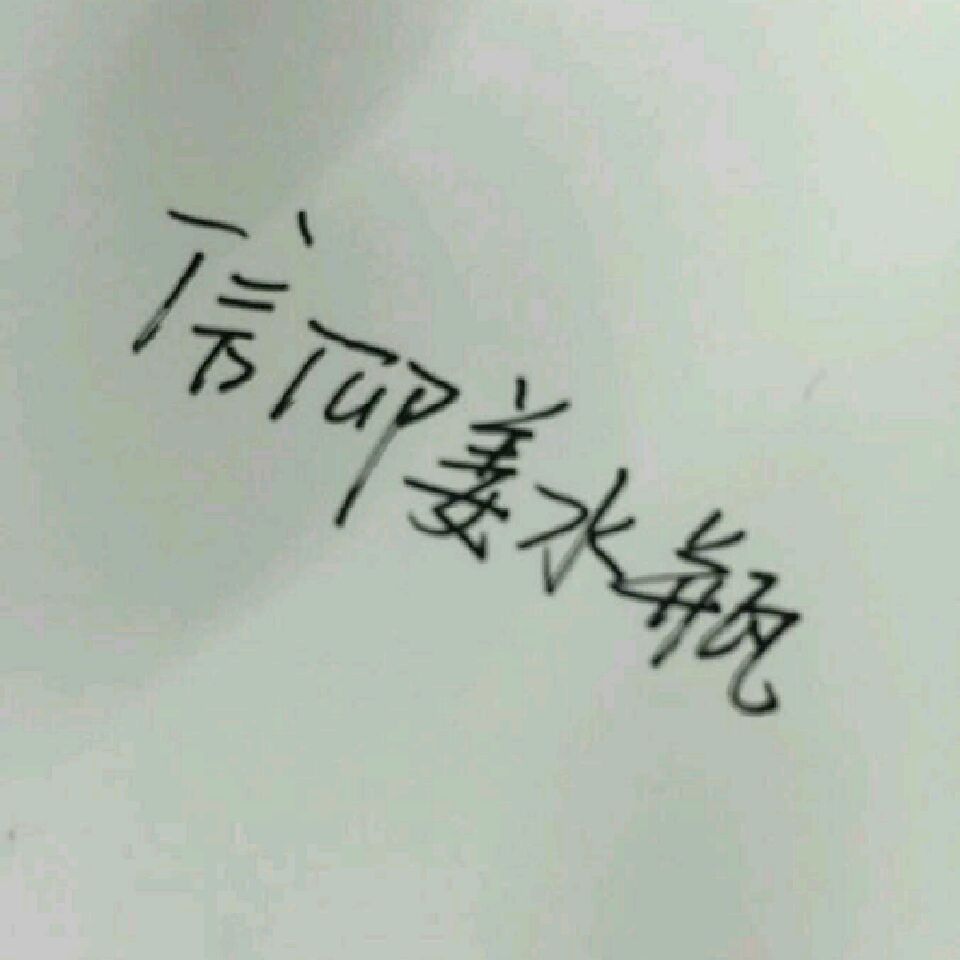 信仰姜水瓶